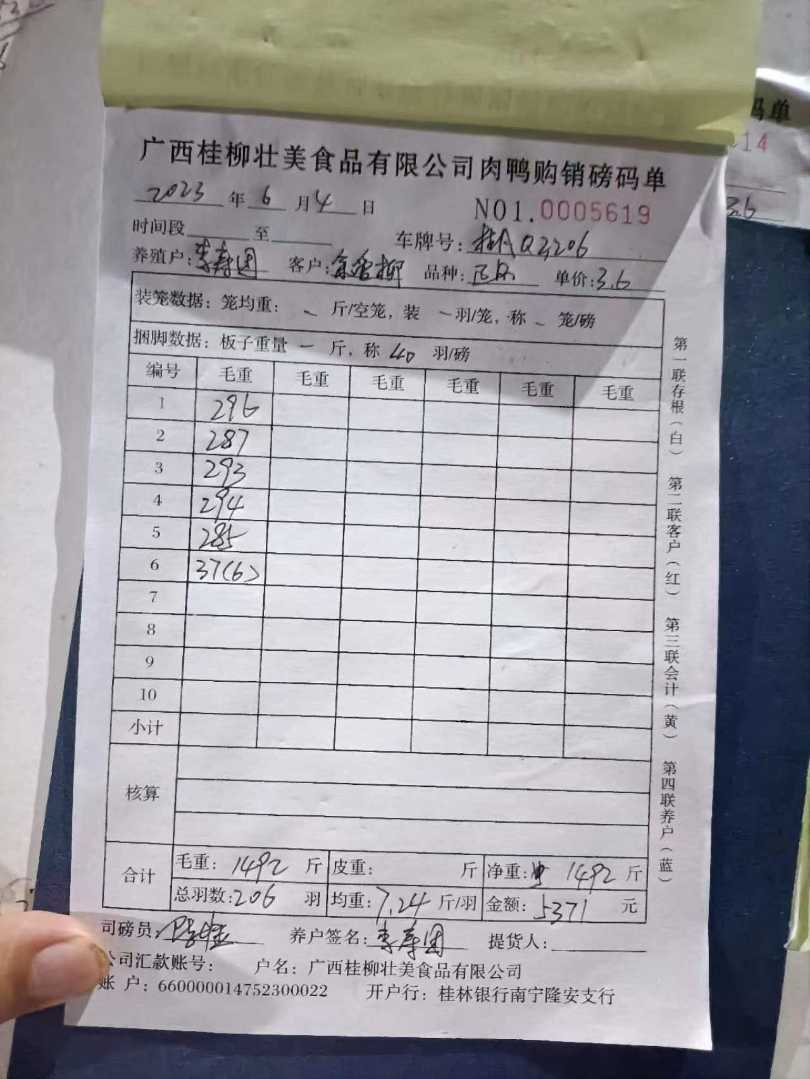 广西桂柳壮美食品有限公司肉鸭购销磅码单
2023 年 6 月 4 日 NO1.0005619
时间段 至 车牌号: 桂AQ3206
养殖户: 李寿团 客户: 品种: 单价: 3.6
装笼数据: 笼均重: - 斤/空笼, 装 - 羽/笼, 称 - 笼/磅
捆脚数据: 板子重量 - 斤, 称 40 羽/磅
编号 毛重 毛重 毛重 毛重 毛重 毛重
1 296
2 287
3 293
4 294
5 285
6 37(6)
7
8
9
10
小计
核算
合计 毛重: 1492 斤 皮重: 斤 净重: 1492 斤
总羽数: 206 羽 均重: 7.24 斤/羽 金额: 5371 元
司磅员: 养户签名: 李寿团 提货人:
公司汇款账号: 户名: 广西桂柳壮美食品有限公司
账 户: 660000014752300022 开户行: 桂林银行南宁隆安支行
第一联存根(白) 第二联客户(红) 第三联会计(黄) 第四联养户(蓝)
码单
14
3.6